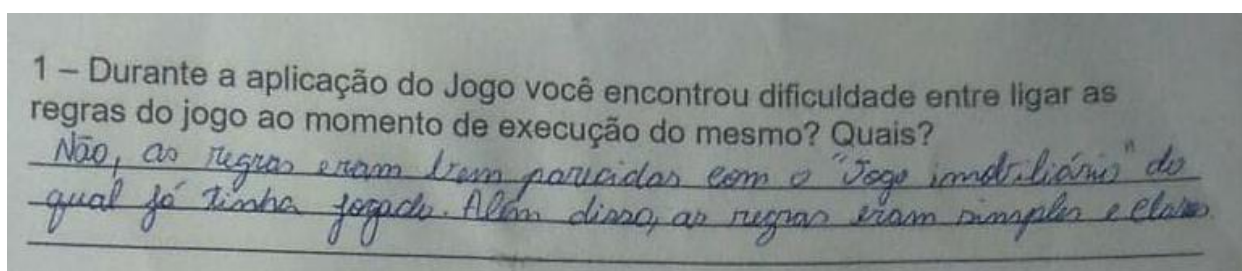 1 – Durante a aplicação do Jogo você encontrou dificuldade entre ligar as
regras do jogo ao momento de execução do mesmo? Quais?
Não, as regras eram bem parecidas com o "Jogo imobiliário" do
qual já tinha jogado. Além disso, as regras eram simples e claras.